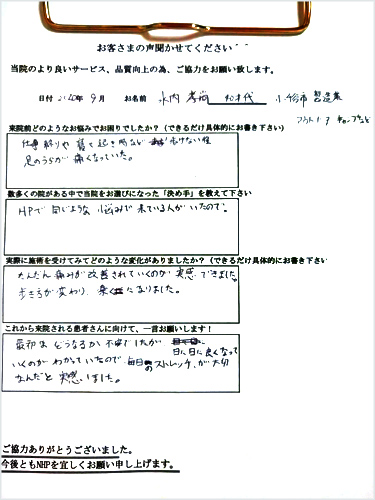 お客さまの声聞かせてください
当院のより良いサービス、品質向上の為、ご協力をお願い致します。
日付 2020年 9月 お名前 木内 40才代 小牧市 製造業
アウトドア キャンプなど
来院前どのようなお悩みでお困りでしたか？（できるだけ具体的にお書き下さい）
仕事終りや 寝て起き時など 歩けない程
足のうらが 痛くなっていた。
数多くの院がある中で当院をお選びになった「決め手」を教えて下さい
HPで 同じような 悩みで 来ている人がいたので。
実際に施術を受けてみてどのような変化がありましたか？（できるだけ具体的にお書き下さい
だんだん 痛みが 改善されていくのが 実感できました。
歩き方が変わり、楽になりました。
これから来院される患者さんに向けて、一言お願いします！
最初は どうなるか 不安でしたが 日に日に良くなって
いくのが わかっていたので 毎日のストレッチが大切
なんだと 実感しました。
ご協力ありがとうございました。
今後ともNHPを宜しくお願い申し上げます。